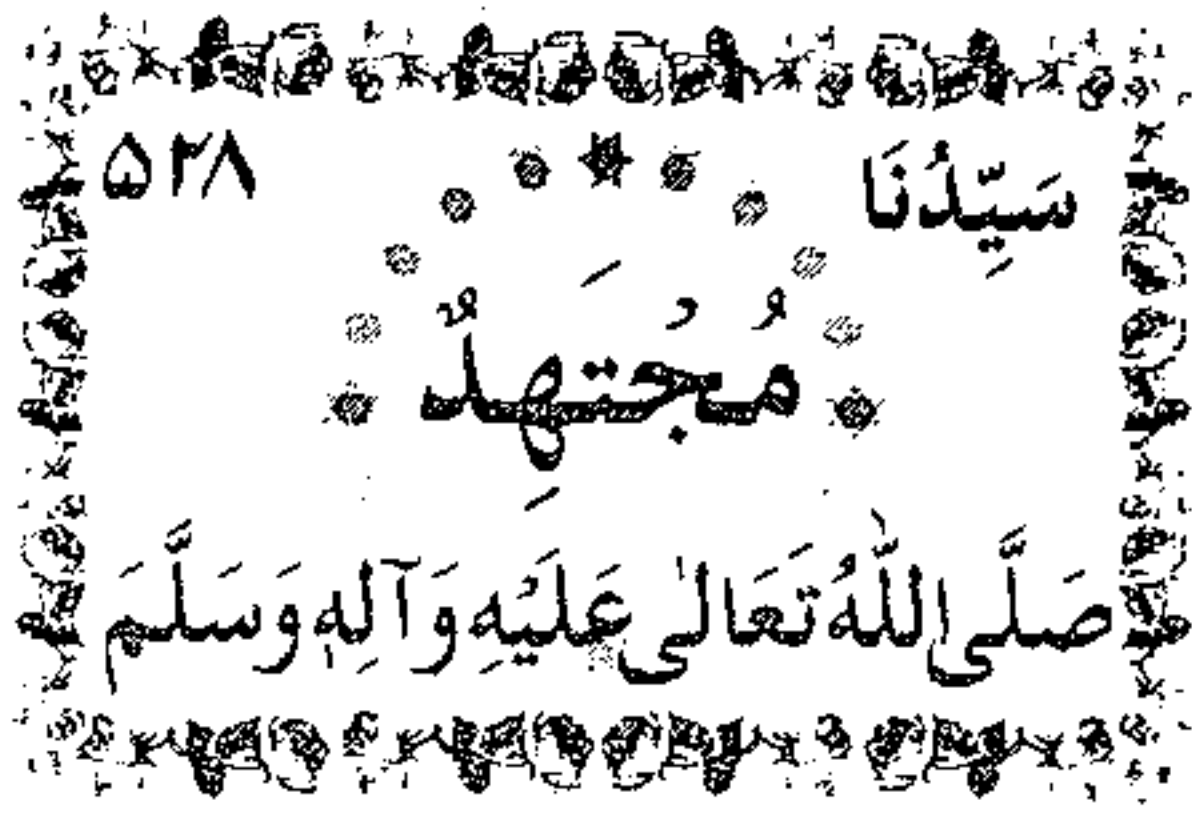 سَيِّدُنَا ۵۲۸
مُجْتَهِدٌ
صَلَّى اللّٰهُ تَعَالٰى عَلَيْهِ وَآلِهٖ وَسَلَّمَ